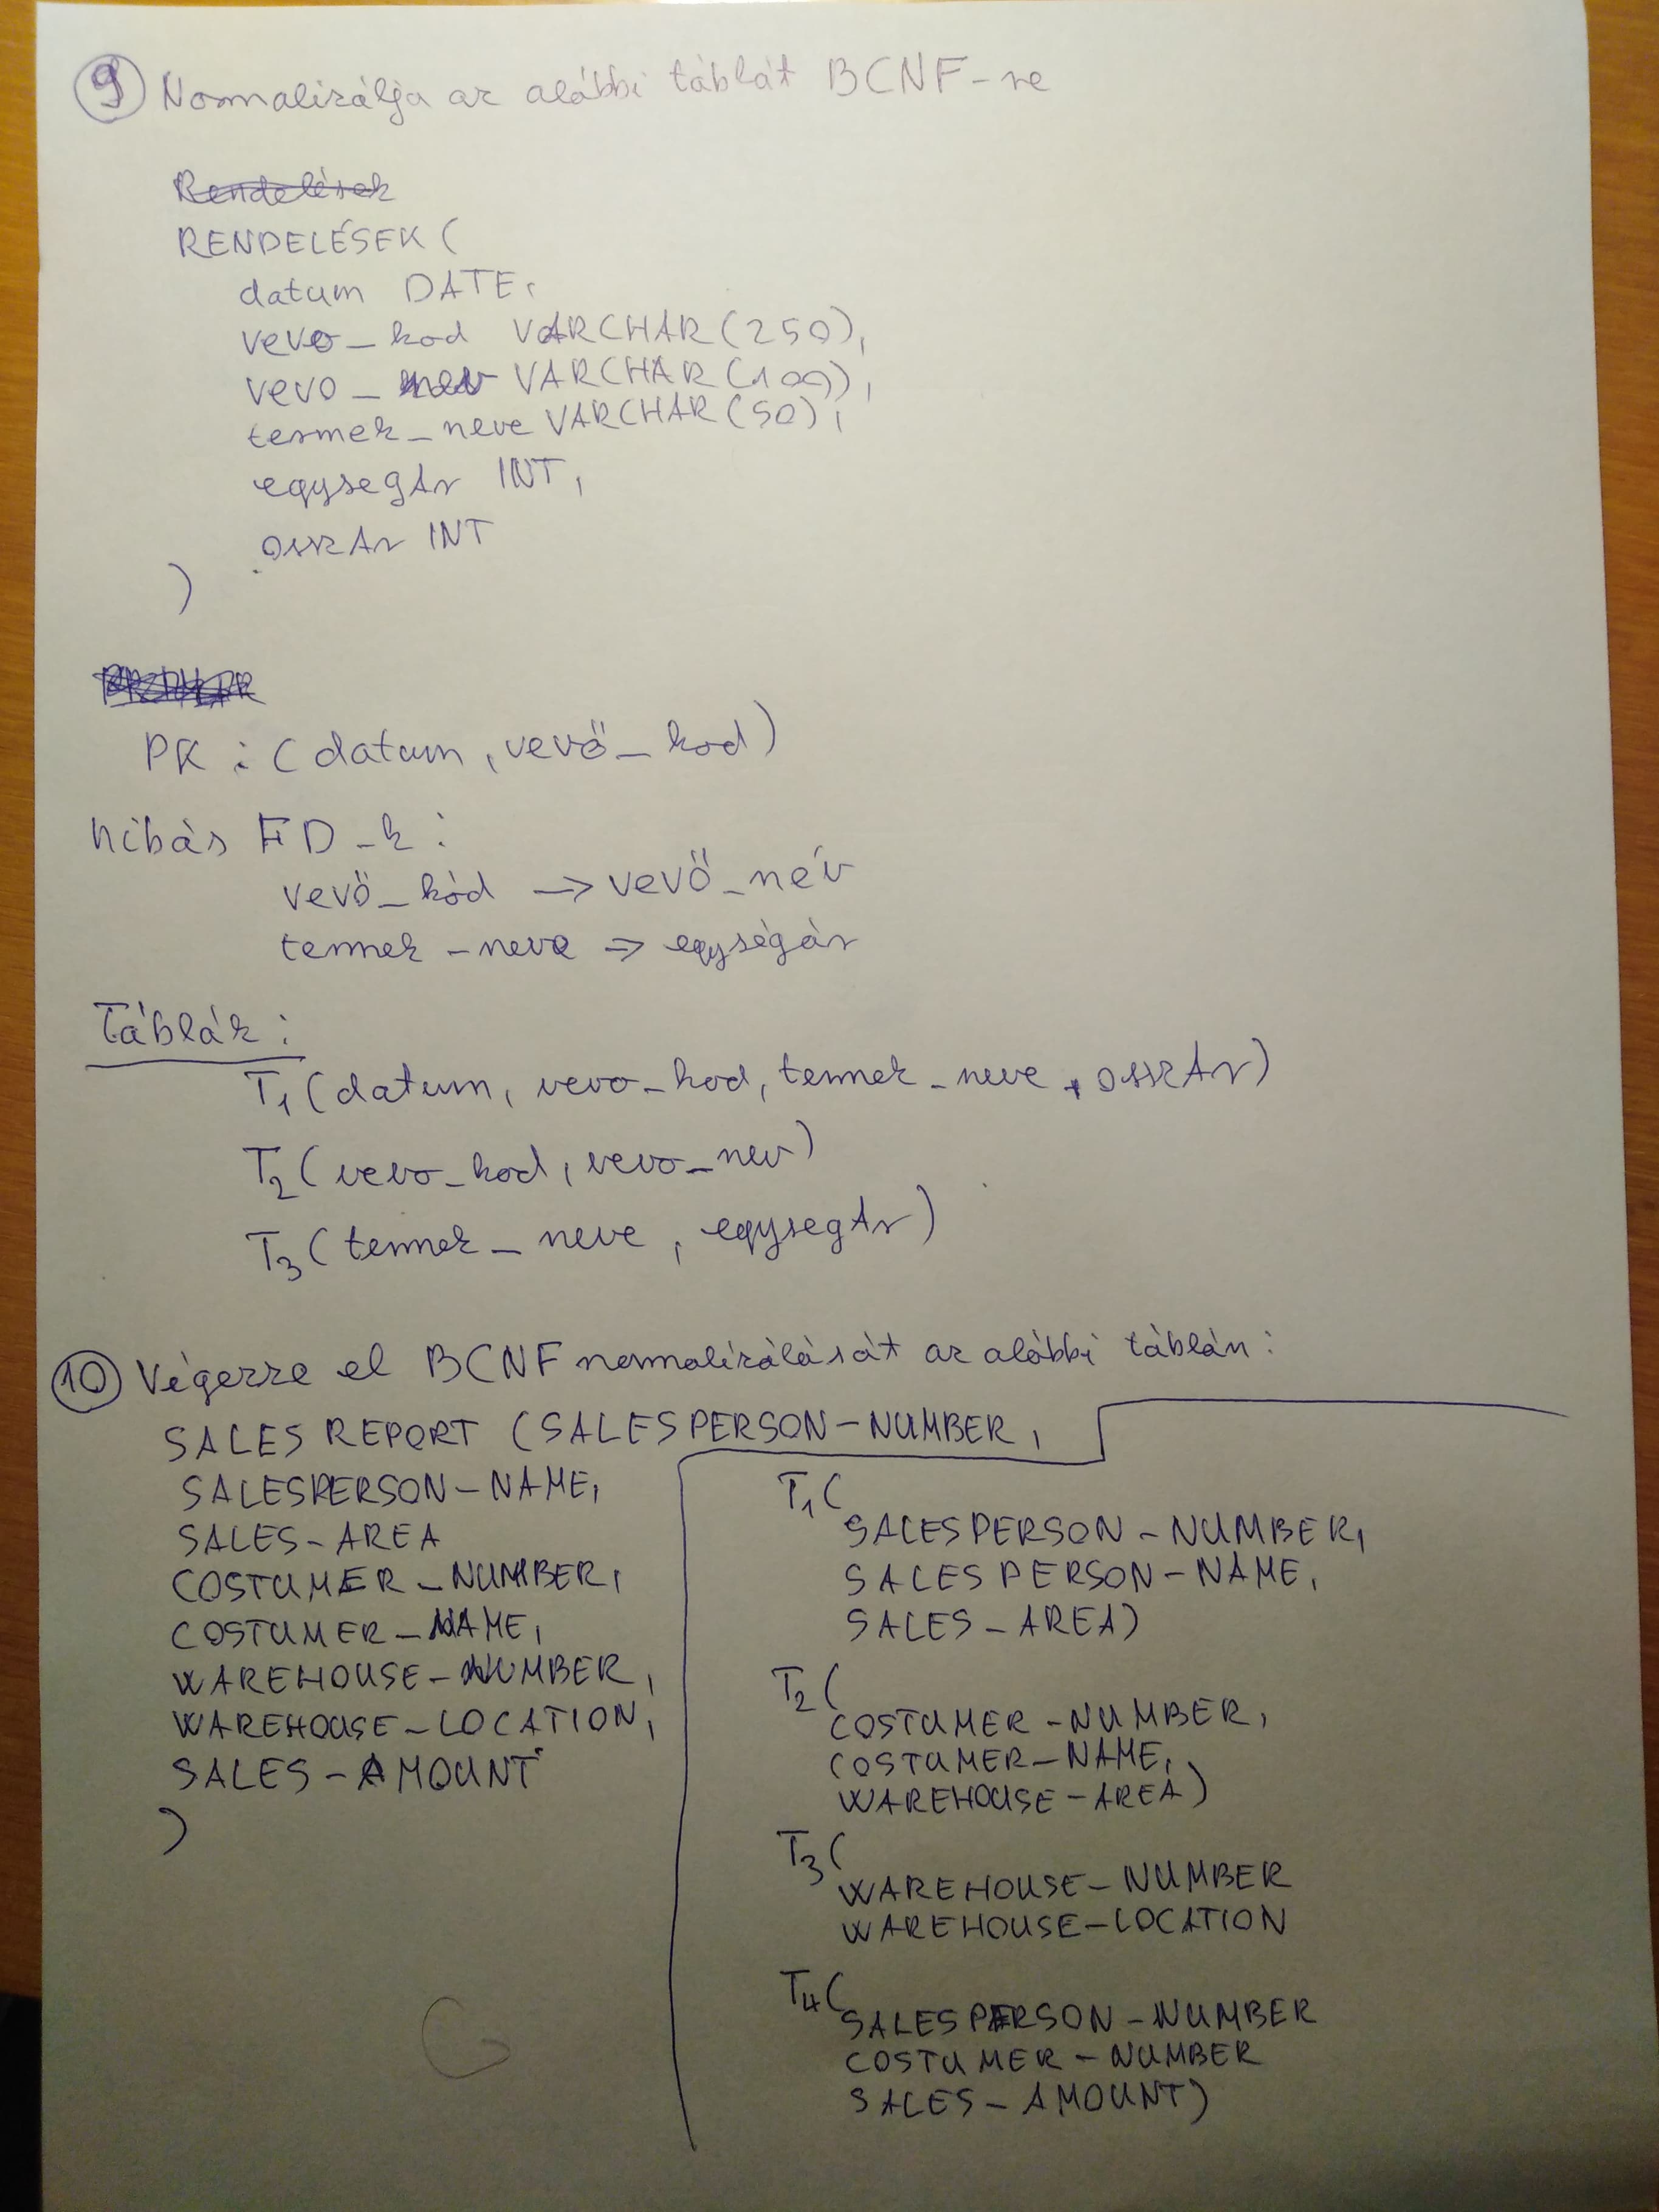 9 Normalizálja az alábbi táblát BCNF-re
Rendelések
RENDELÉSEK (
datum DATE,
vevo_kod VARCHAR(250),
vevo_nev VARCHAR(100),
termek_neve VARCHAR(50),
egysegAr INT,
osszAr INT
)
PK : (datum, vevő_kod)
hibás FD-k:
vevő_kód -> vevő_név
termek_neve => egységár
Táblák:
T1 (datum, vevo_kod, termek_neve, osszAr)
T2 (vevo_kod, vevo_nev)
T3 (termek_neve, egysegAr)
10 Végezze el BCNF normalizálását az alábbi táblán:
SALES REPORT (SALESPERSON-NUMBER,
SALESPERSON-NAME,
SALES-AREA
COSTUMER-NUMBER,
COSTUMER-NAME,
WAREHOUSE-NUMBER,
WAREHOUSE-LOCATION,
SALES-AMOUNT
)
T1 (
SALESPERSON-NUMBER,
SALESPERSON-NAME,
SALES-AREA)
T2 (
COSTUMER-NUMBER,
COSTUMER-NAME,
WAREHOUSE-AREA)
T3 (
WAREHOUSE-NUMBER
WAREHOUSE-LOCATION
T4 (
SALESPERSON-NUMBER
COSTUMER-NUMBER
SALES-AMOUNT)